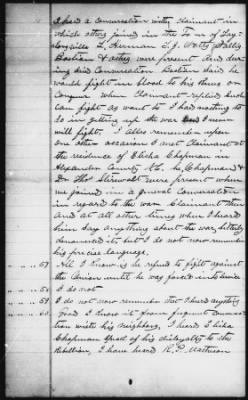 I had a conversation with claimant in
which others joined in the Town of Tay-
lorsville L. Herman T. J. Watts Wallis
Bostian & others were present. And dur-
ing said Conversation Bostian said he
would fight in blood to his thighs or
Conquer when Claimant replied such
can fight as want to I had nothing to
do in getting up the war and I never
will fight. I allso remember upon
one other occasion I met Claimant at
the residence of Elisha Chapman in
Alexander County N.C. E. Chapman &
Dr Thos Stirewalt were present where
we joined in a general conversation
in regard to the war. Claimant then
and at all other times when I heard
him say anything about the war bitterly
denounced it but I do not now remember
his precise language.
57 All I know is he refused to fight against
the Union until he was forced into service
58 I do not
59 I do not now remember that I heard anything
60 Good I know it from frequent conversa-
tion with his neighbors, I heard Elisha
Chapman speak of his disloyalty to the
Rebellion, I have heard R. P. Matheson